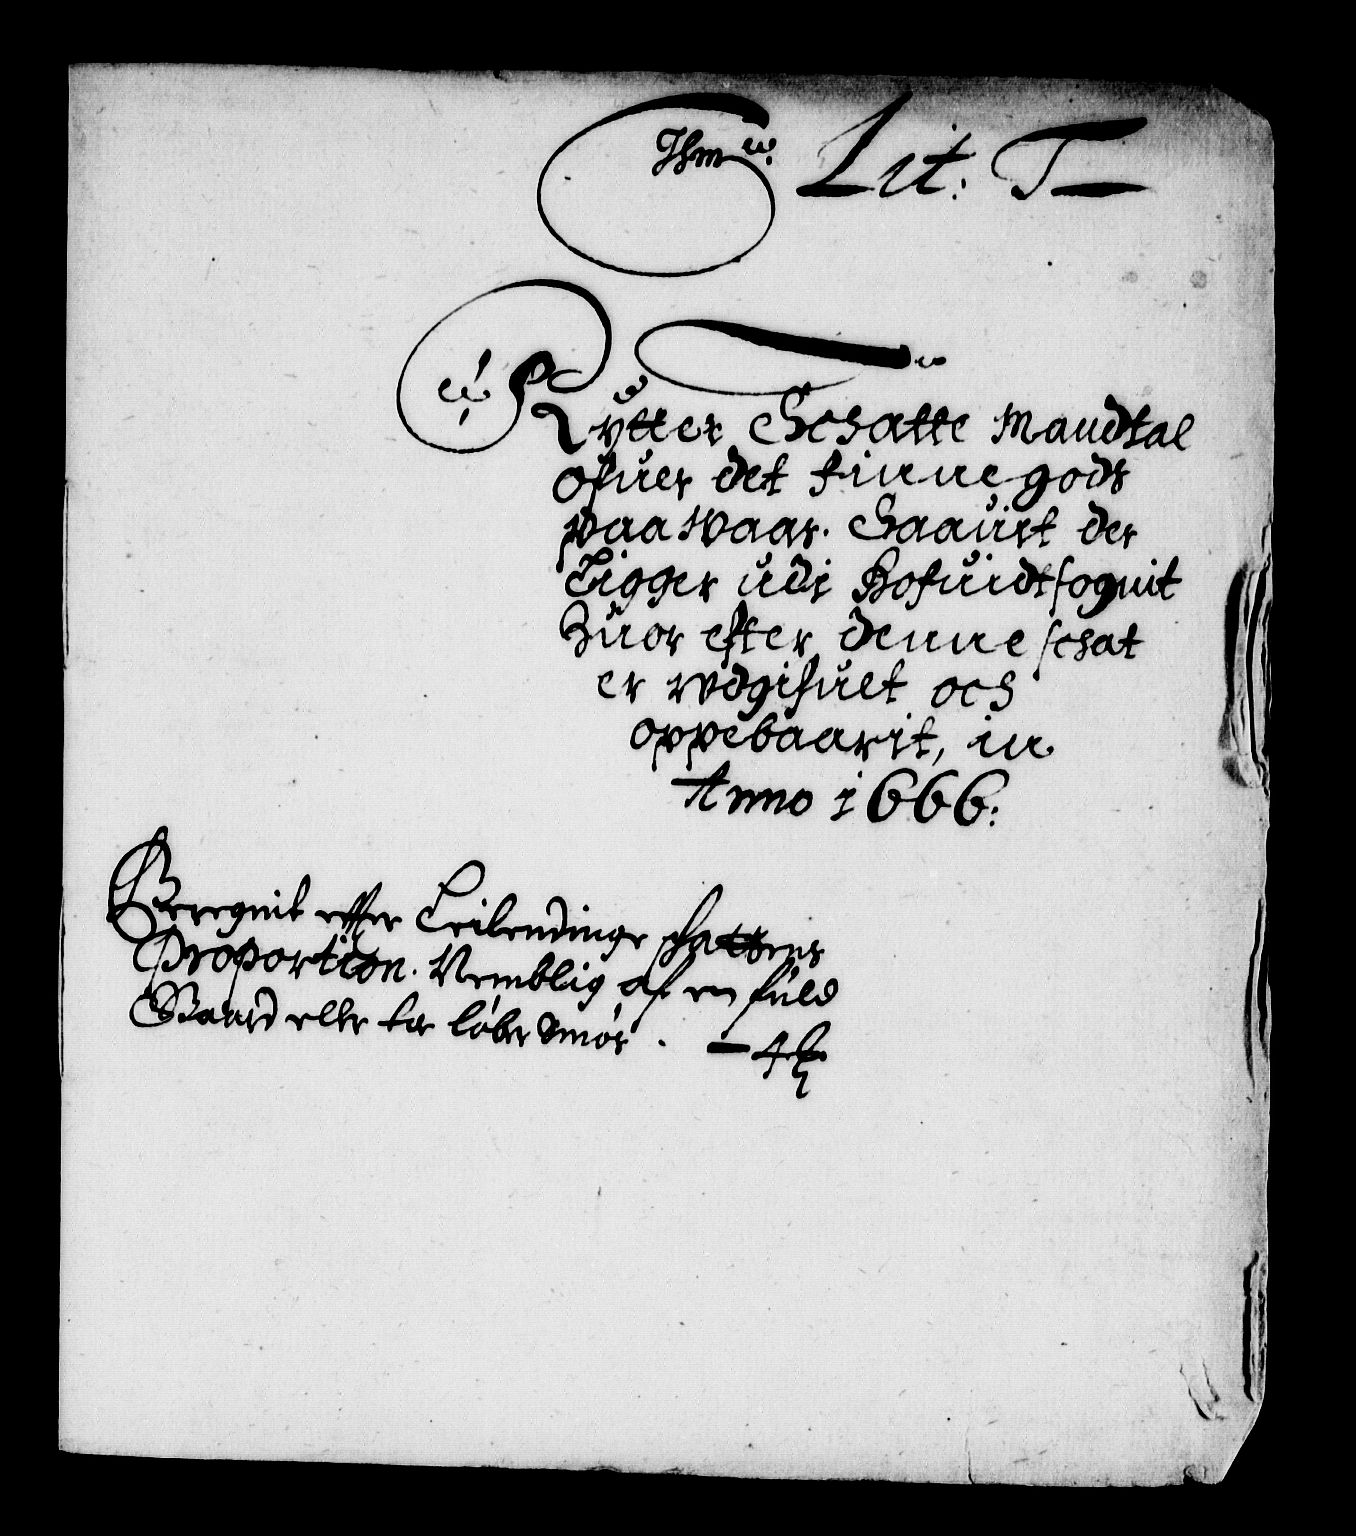 Lit: T
Rytter Schatte Mandtal
ofuer det finnegods
paa Waas. Saauit der
Ligger udi Hofuidsognit
Huor efter denne schat
er wdgifuet och
oppebaarit, in
Anno 1666:
Beregnit effter Leilendinge schattens
Proportion. Nemblig af en fuld
Gaard eller tor løber Smør. — 4